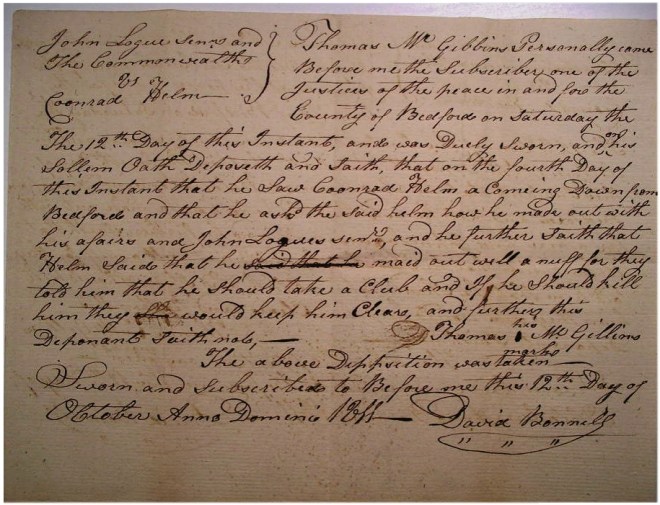 John Logue senr and
The Commonwealth
vs
Coonrad Helm
Thomas Mc Gibbins Personally came
Before me the Subscriber one of the
Justices of the peace in and for the
County of Bedford on Saturday the
The 12th Day of this Instant, and was Duely Sworn, and on his
Sollem Oath Deposeth and Saith, that on the fourth Day of
this Instant that he Saw Coonrad Helm a Comeing Down from
Bedford and that he askd the Said helm how he made out with
his afairs and John Logues senr, and he further Saith that
Helm Said that he said that he maid out well a nuff for they
told him that he Should take a Club and If he Should kill
him they would keep him Clear, and further this
Deponant Saith note,
Thomas his Mc Gibbins
marke
The above Deposition was taken
Sworn and Subscribed to Before me this 12th Day of
October Anno Dominie
David Bonnell